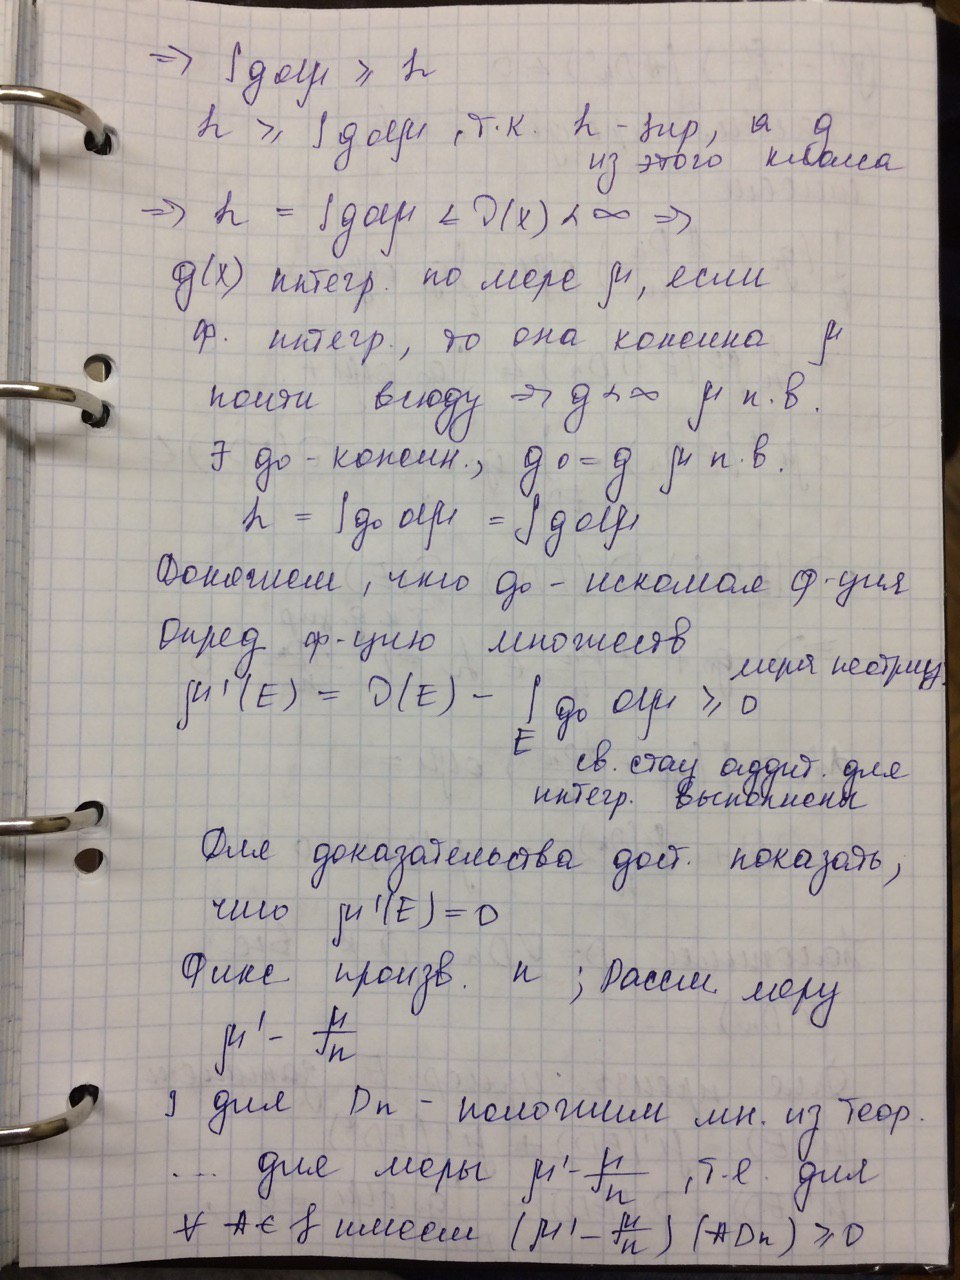 ⇒ ∫gdμ ≥ h
h ≥ ∫gdμ, т.к. h - sup, а g
из этого класса
⇒ h = ∫gdμ ≤ D(X) < ∞ ⇒
g(x) интегр. по мере μ, если
ф. интегр., то она конечна μ
почти всюду ⇒ g < ∞ μ п.в.
∃ g₀ - конечн., g₀ = g μ п.в.
h = ∫g₀ dμ = ∫gdμ
Докажем, что g₀ - искомая ф-ция
Опред ф-цию множеств
мера неотриц.
μ'(E) = D(E) - ∫ g₀ dμ ≥ 0
E
св. аддит. для
интегр. выполнены
Для доказательства дост. показать,
что μ'(E) = 0
Фикс произв. n ; Рассм. меру
μ' - μ/n
для Dn - положит мн. из теор.
... для меры μ' - μ/n, т.е. для
∀ A ∈ имеем (μ' - μ/n) (ADn) ≥ 0